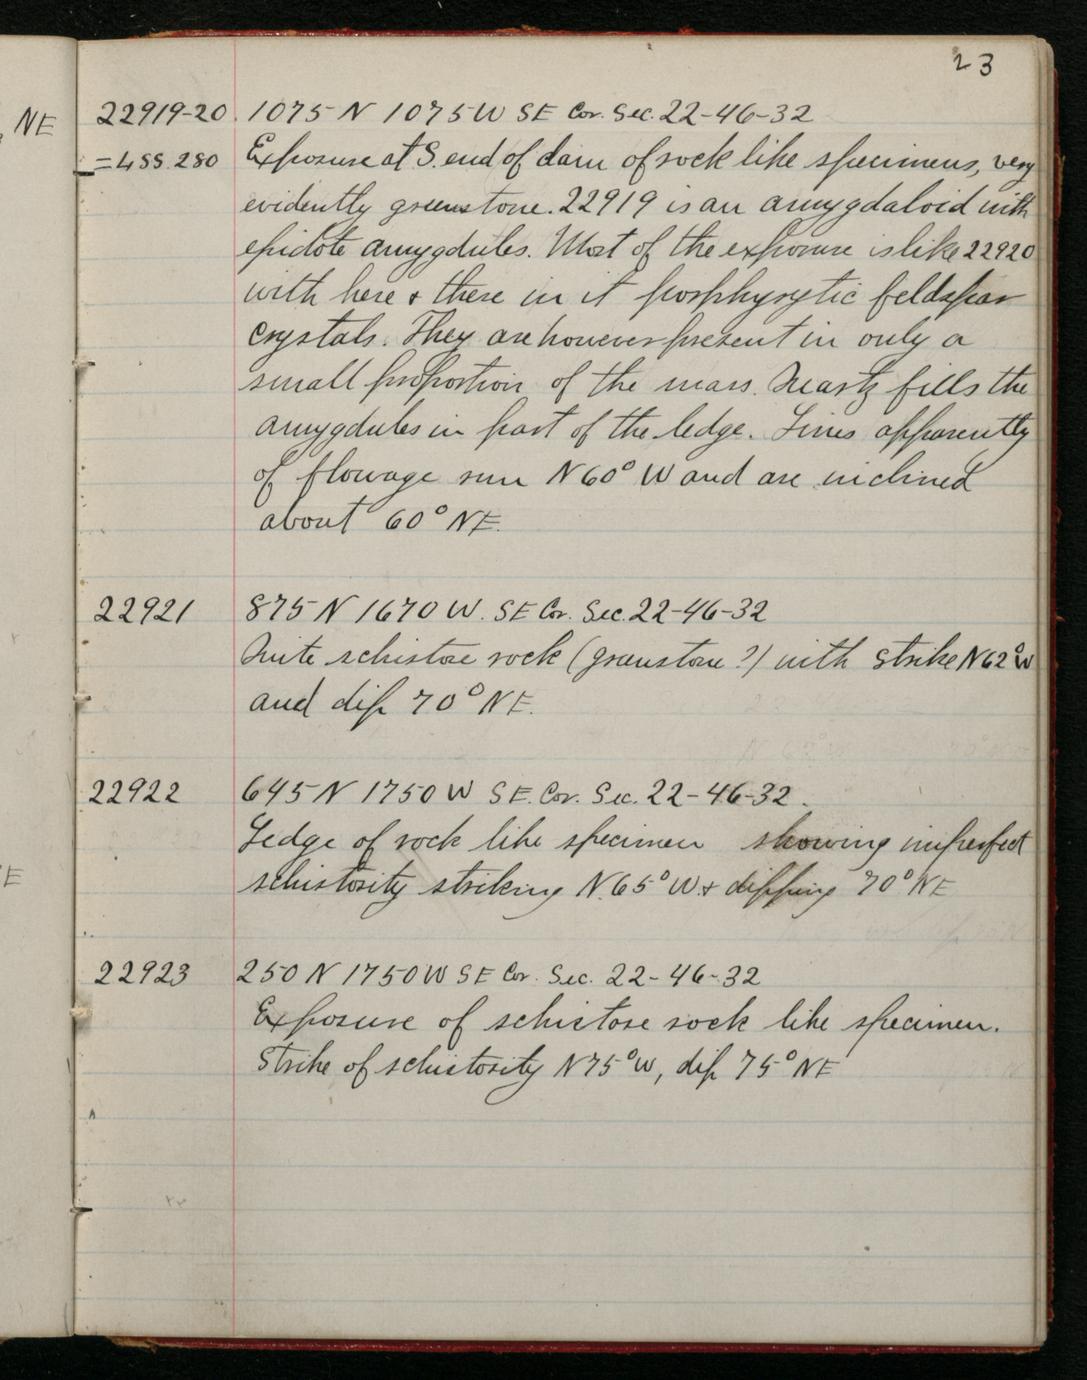 23
NE
22919-20. 1075 N 1075 W SE Cor. Sec. 22-46-32
= LSS. 280 Exposure at S. end of dam of rock like specimens, very
evidently greenstone. 22919 is an amygdaloid with
epidote amygdules. Most of the exposure is like 22920
with here & there in it porphyrytic feldspar
crystals. They are however present in only a
small proportion of the mass. Quartz fills the
amygdules in part of the ledge. Lines apparently
of flowage run N 60° W and are inclined
about 60° NE.
22921 875 N 1670 W. SE Cor. Sec. 22-46-32
Quite schistose rock (greenstone ?) with strike N 62° W
and dip 70° NE.
22922 645 N 1750 W SE. Cor. Sec. 22-46-32.
Ledge of rock like specimen showing imperfect
E
schistosity striking N. 65° W. & dipping 70° NE
22923 250 N 1750 W SE Cor. Sec. 22-46-32
Exposure of schistose rock like specimen.
Strike of schistosity N 75° W, dip 75° NE